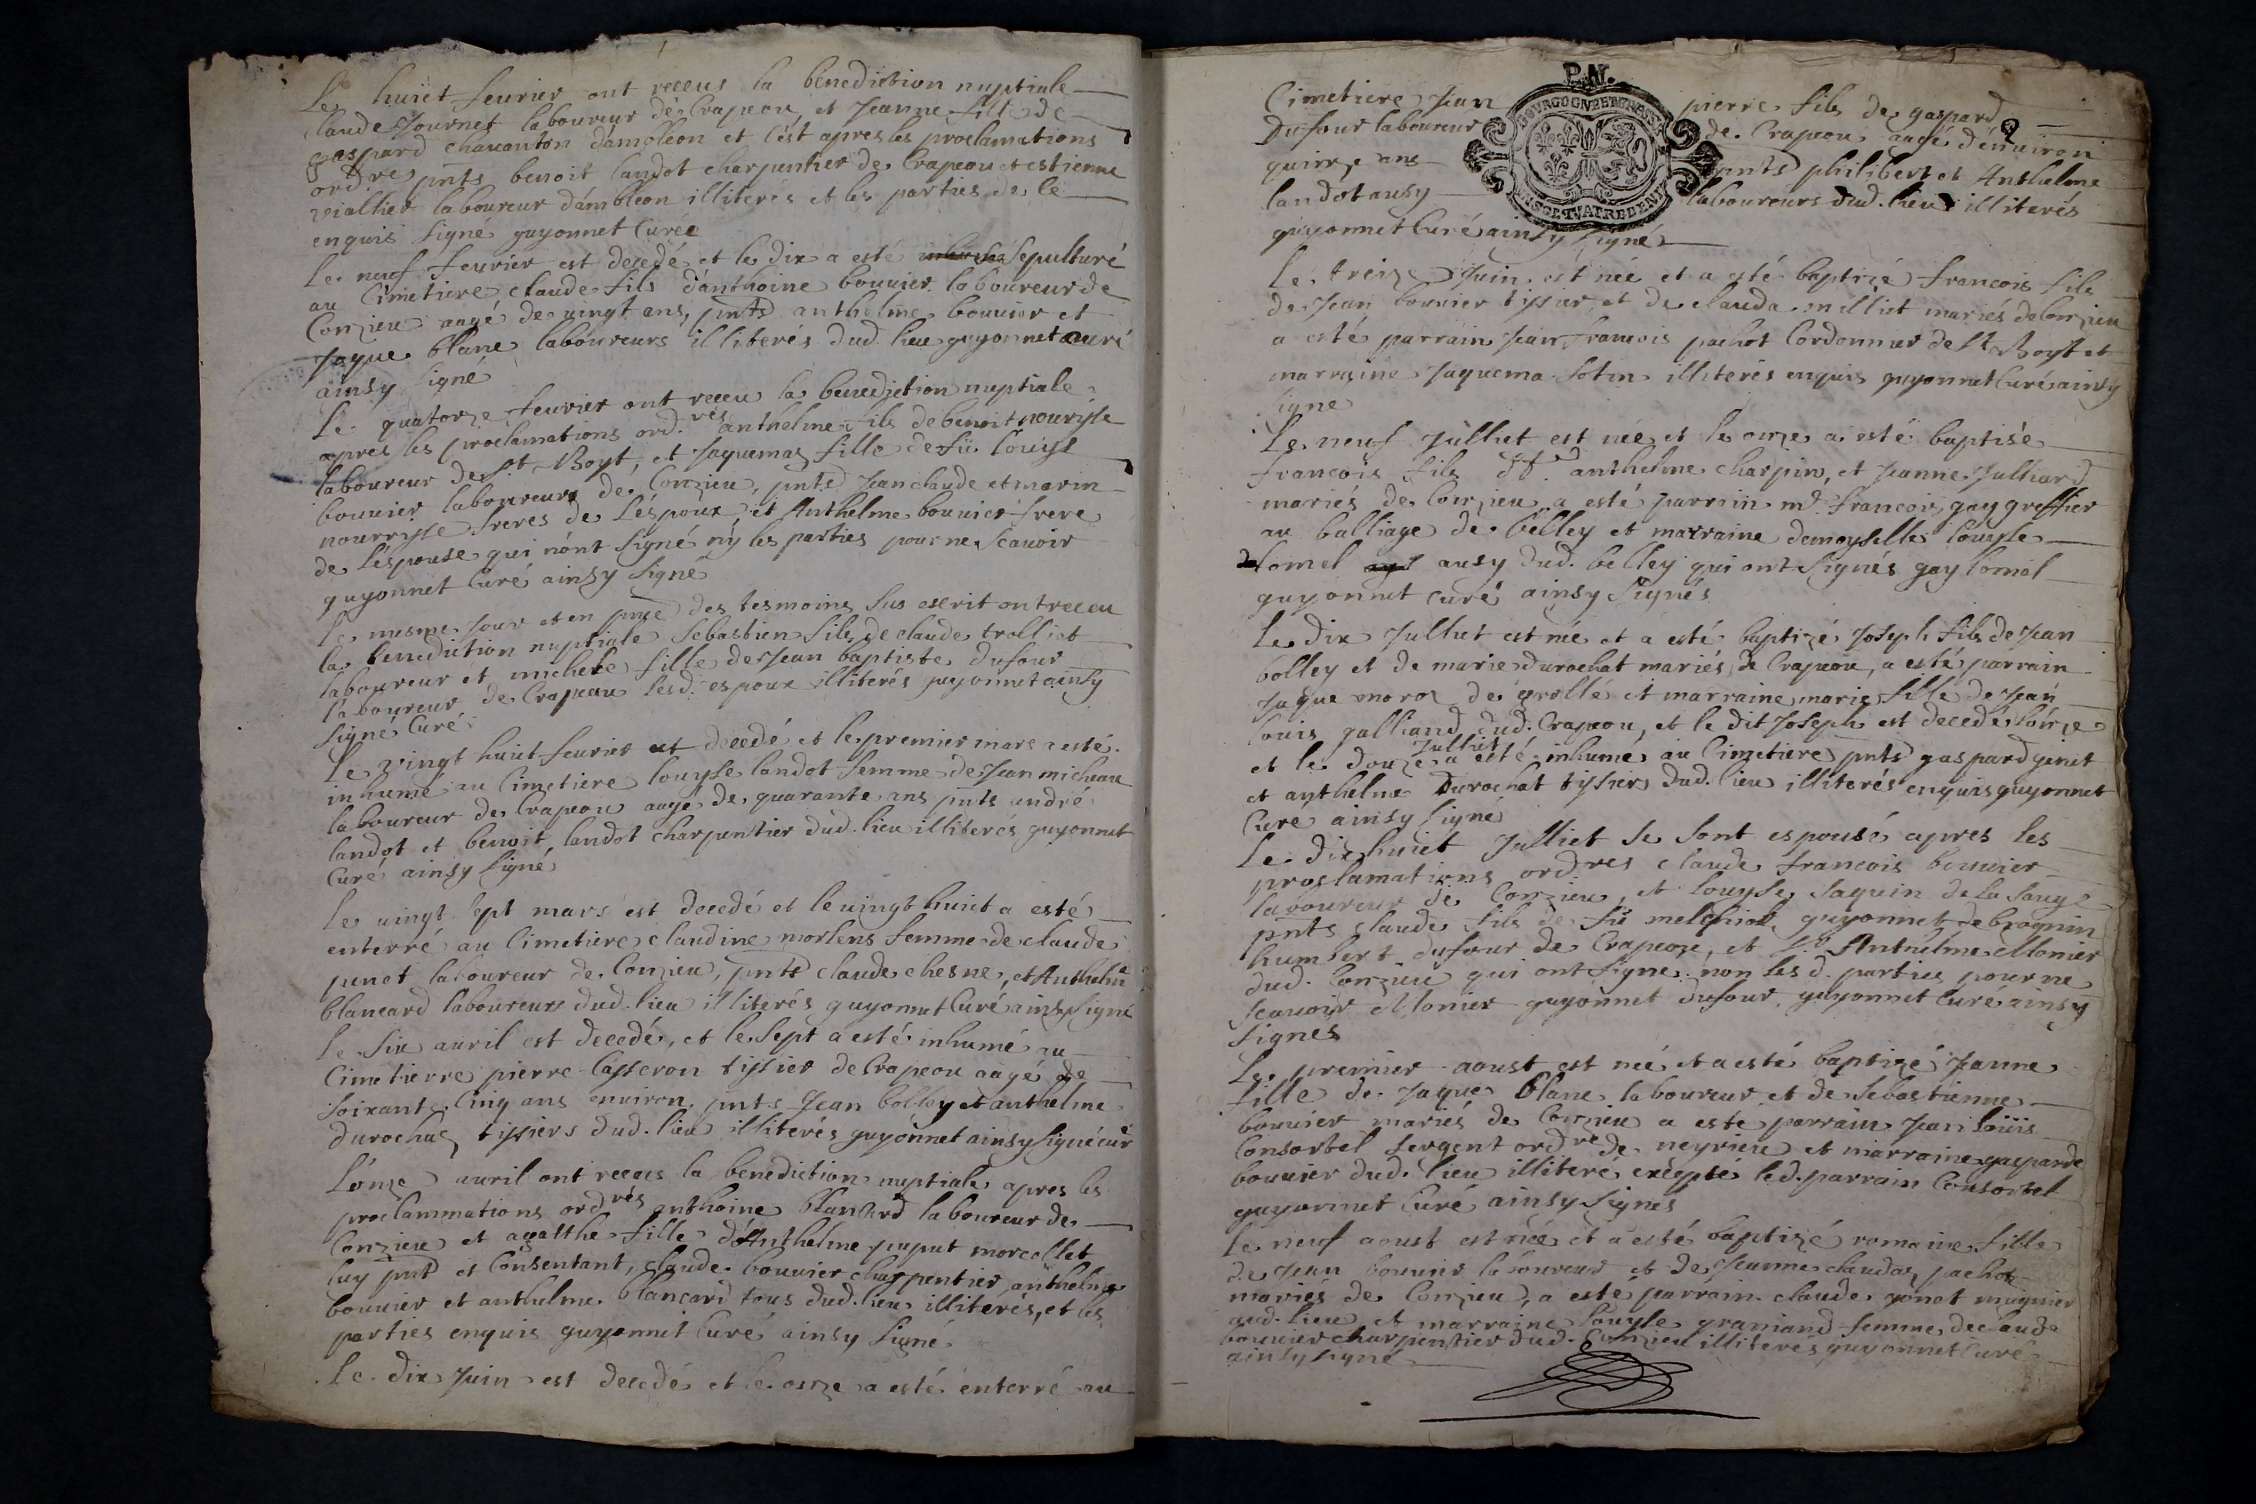 Le huiet feurier ont receus la benediction nuptiale
claude Journet laboureur de Crapeou et Jeanne fille de
gaspard chauanton d'amoleon et c'est apres les proclamations
ord.res pnts benoit landot charpentier de Crapeou et estienne
viallier laboureur d'ambleon illiterés et les parties de ce
enquis signé guyonnet Curé
Le neuf feurier est decedé et le dix a esté sepulturé
au Cimetiere claude fils d'anthoine bouuier laboureur de
Conzieu aagé de vingt ans, pnts anthelme bouuier et
Jaque blanc laboureurs illiterés dud. lieu guyonnet curé
ainsy signé
Le quatorze feurier ont receu la benediction nuptiale
apres les proclamations ord.res anthelme fils de benoit nourisse
laboureur de St Boyt, et Jaquemaz fille de fû louyse
bouuier laboureurs de Conzieu, pnts Jean claude et marin
nourrisse freres de l'espoux, et Anthelme bouuier frere
de l'espouse qui n'ont signé ny les parties pour ne scauoir
guyonnet Curé ainsy signé
le mesme jour et en pnce des tesmoins sus escrit ont receu
la benediction nuptiale Sebastien fils de claude trolliet
laboureur et michele fille de Jean baptiste dufour
laboureur de Crapeau lesd. espoux illiterés guyonnet ainsy
signé Curé
Le vingt huit feurier est decedé et le premier mars a esté
inhumé au Cimetiere louyse landot femme de Jean micheau
laboureur de Crapeou aagé de quarante ans pnts andré
landot et benoit landot charpentier dud. lieu illiterés guyonnet
Curé ainsy signé
Le vingt sept mars est decedé et le vingt huiet a esté
enterré au Cimetiere claudine morlens femme de claude
penet laboureur de Conzieu, pnts claude chesne, et Anthelme
blancard laboureurs dud. lieu illiterés guyonnet Curé ainsy signé
Le six auril est decedé, et le sept a esté inhumé au
Cimetierre pierre Casseron tissier de Crapeou aagé de
soixante cinq ans enuiron pnts Jean bolley et anthelme
durochaz tissiers dud. lieu illiterés guyonnet ainsy signé cur
L'onze auril ont receus la benediction nuptiale apres les
proclammations ord.res anthoine blancard laboureur de
Conzieu et agatthe fille d'Anthelme puput morcellet
luy pnt et Consentant, claude bouuier charpentier anthelme
bouuier et anthelme blancard tous dud. lieu illiterés, et les
parties enquis guyonnet Curé ainsy signé
Le dix Juin est decedé et le onze a esté enterré au
P.N.
BOURGOGNE ET BRESSE
Cimetiere Jean pierre fils de gaspard
Dufour laboureur de Crapeou aagé d'enuiron
quinze ans pnts philibert et Anthelme
landot ausy laboureurs dud. lieu illiterés
guyonnet Curé ainsy signé
Le treize Juin est née et a esté baptizé francois fils
de Jean bouuier tissier, et de clauda milliet mariés de Conzieu
a esté parrain Jean francois pachot Cordonnier de St Boyt et
marraine Jaquema sotin illiterés enquis guyonnet Curé ainsy
signe
Le neuf Julliet est née et le onze a esté baptisé
francois fils d'anthelme charpin, et Jeanne Julliard
mariés de Conzieu a esté parrain mr francois gay greffier
au balliage de belley et marraine demoyselle louyse
lomel ausy dud. belley qui ont signés gay lomel
guyonnet curé ainsy signés
Le dix Julliet est née et a esté baptizé Joseph fils de Jean
bolley et de marie durochat mariés de Crapeou, a esté parrain
Jaque moroz de grollé et marraine marie fille de Jean
louis galliand dud. Crapeou, et le dit Joseph est decedé l'onze
et le douze Julliet a esté inhumé au Cimetiere pnts gaspard genet
et anthelme Durochat tissiers dud. lieu illiterés enquis guyonnet
Cure ainsy signé
Le dix huiet Julliet se sont espousé apres les
proclamations ord.res claude francois bouuier
laboureur de Conzieu, et louyse Jaquin de la Sauge
pnts claude fils de fû melchior guyonnet de brognin
humbert dufour de Crapeou, et Sr Anthelme Monier
dud. Conzieu qui ont signe non les d. parties pour ne
scauoir Monier guyonnet dufour guyonnet Curé ainsy
signes
Le premier aoust est née et a esté baptizé Jeanne
fille de Jaque blanc laboureur et de Sebastienne
bouuier mariés de Conzieu a este parrain Jean loüis
Consortel sergent ord.re de neyrieu et marraine gasparde
bouuier dud. lieu illiteré excepté led. parrain Consortel
guyonnet Curé ainsy signés
Le neuf aoust est née et a esté baptizé romaine fille
de Jean bouuier laboureur et de Jeanne claudaz pachot
mariés de Conzieu, a esté parrain claude genet
dud. lieu et marraine louyse gramand femme de claude
bouuier charpentier dud. Conzieu illiterés guyonnet Curé
ainsy signé